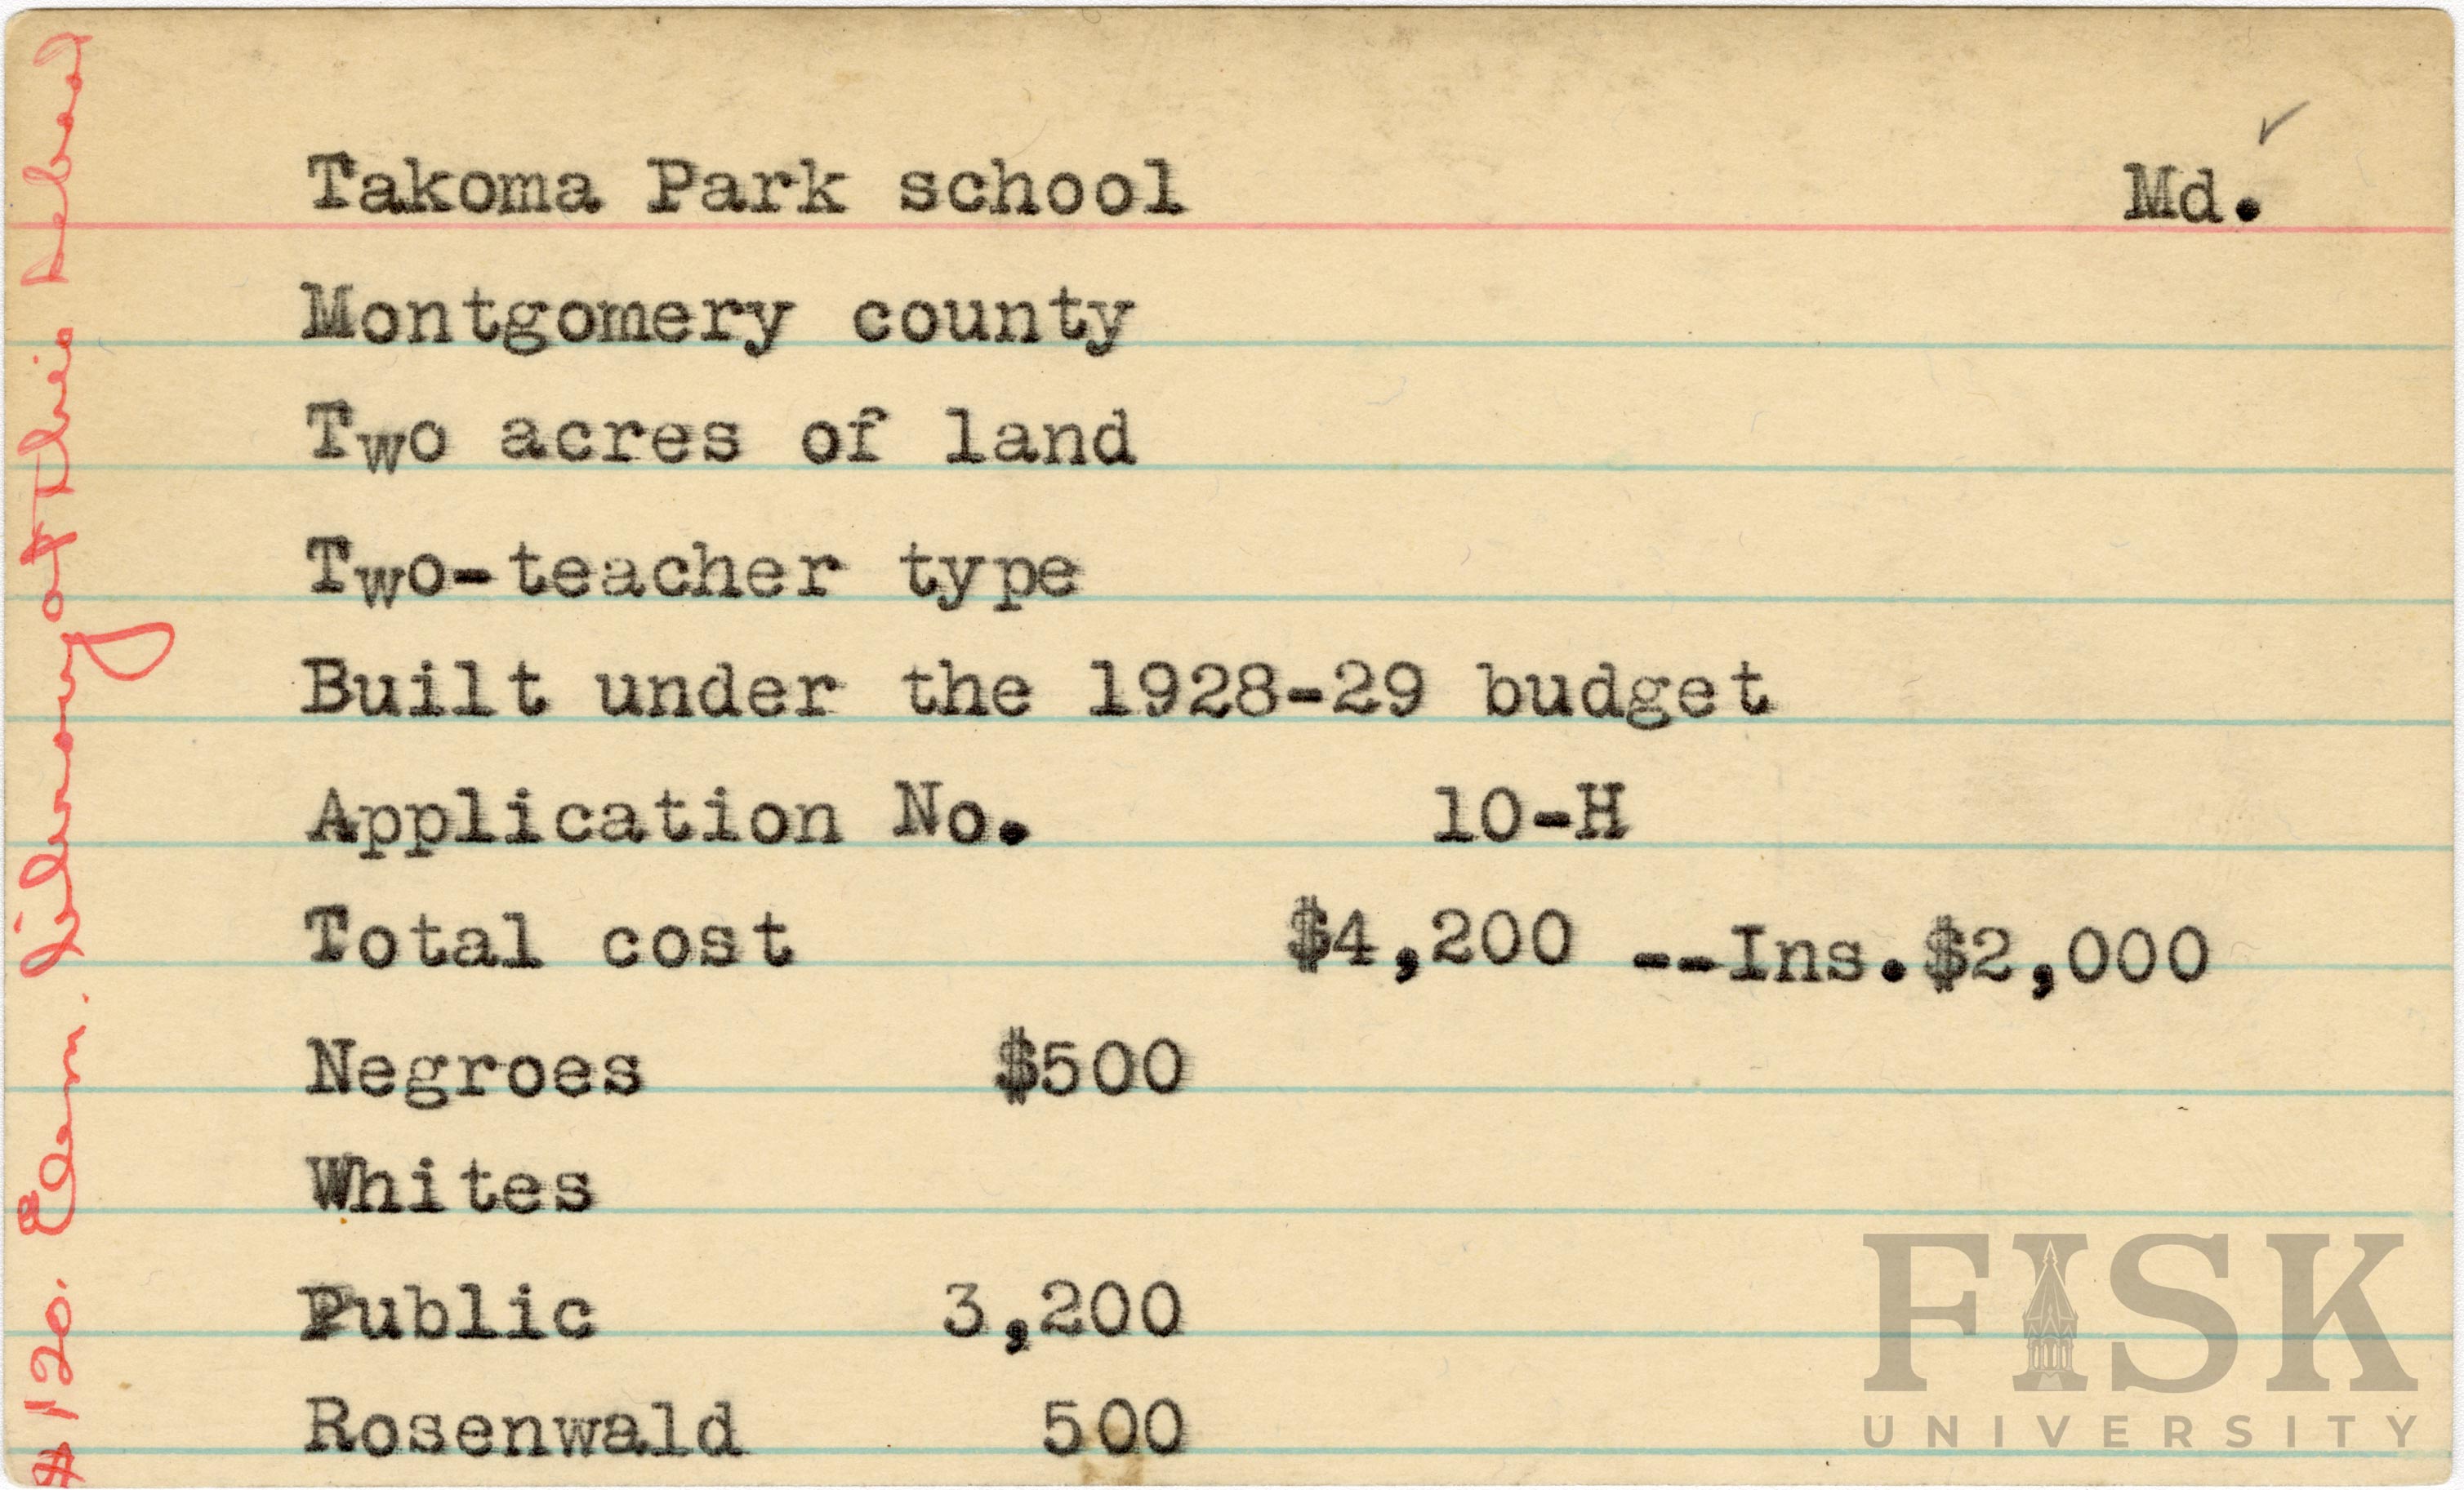 Takoma Park school Md.
Montgomery county
Two acres of land
Two-teacher type
Built under the 1928-29 budget
Application No. 10-H
Total cost $4,200 --Ins.$2,000
Negroes $500
Whites
Public 3,200
Rosenwald 500
$120. Elem. Library at this school
FISK
UNIVERSITY